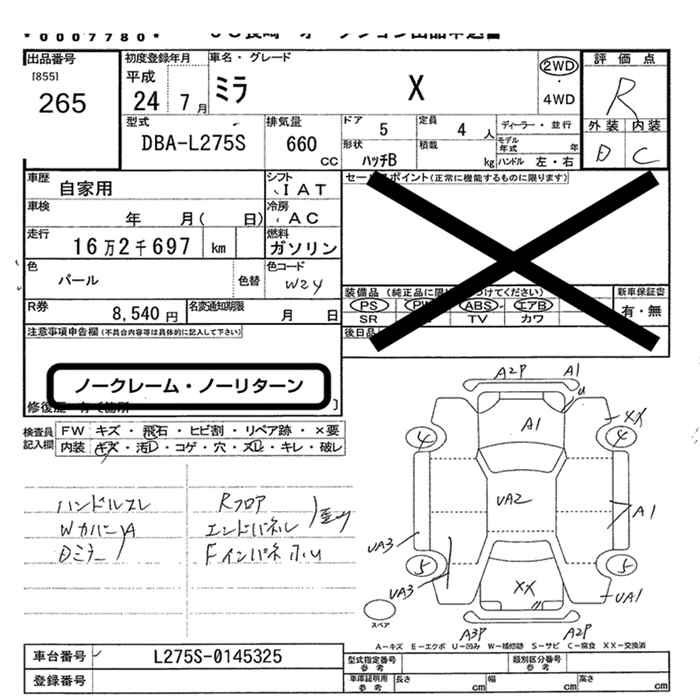 *0007780*
出品番号
[855]
265
初度登録年月
平成
24 7月
車名・グレード
ミラ X
2WD
・
4WD
評価点
R
外装 内装
D C
型式
DBA-L275S
排気量
660
cc
ドア 5
定員 4人
形状
ハッチB
積載
kg
ディーラー・並行
モデル年式 年
ハンドル 左・右
車歴
自家用
シフト
IAT
車検
年 月( 日)
冷房
AC
走行
16万2千697 km
燃料
ガソリン
色
パール
色替
色コード
W24
R券
8,540円
名変通知期限
月 日
注意事項申告欄(不具合内容等は具体的に記入して下さい)
ノークレーム・ノーリターン
セールスポイント(正常に機能するものに限ります)
PS PW ABS エアB
SR TV カワ
新車保証書
有・無
後日品
検査員
記入欄
FW キズ・飛石・ヒビ割・リペア跡・×要
内装 キズ・汚レ・コゲ・穴・スレ・キレ・破レ
ハンドルスレ
WカバーA
Dミラー
Rフロア
エンドパネル
Fインパネ ホル
A2P A1
U
A1
XX
4 4
UA2
A1
UA3
5 5
UA3
XX
UA1
A3P A2P
スペア
A-キズ E-エクボ U-凹み W-補修跡 S-サビ C-腐食 XX-交換済
車台番号
L275S-0145325
登録番号
型式指定番号
参考
類別区分番号
参考
車庫証明用
参考
長さ cm
幅 cm
高さ cm